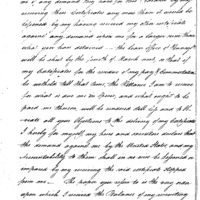 of any demand they have for this
receiving these Certificates any more than it would be
lessened by my having received any other certificate
against any demand upon me for a larger sum than
what you have obtained — the loan office of Pennsylv
will be shut by the fourth of March next, so that if
my Certificates for the residue of my pay & Commutation
be withheld till that time, the Balance I am to receive
for what is due me in Specie, and what ought to be
paid me therein, will be rendered still less and to
viate all your objections to the delivery of my Certificates
I hereby for myself, my heirs and executors declare that
the demand against me by the United States, and my
Accountability to them shall in no wise be lessened or
impaired by my receiving the said certificates stopped
from me — The paper you refer to is the only one
upon which I received the Balance of my